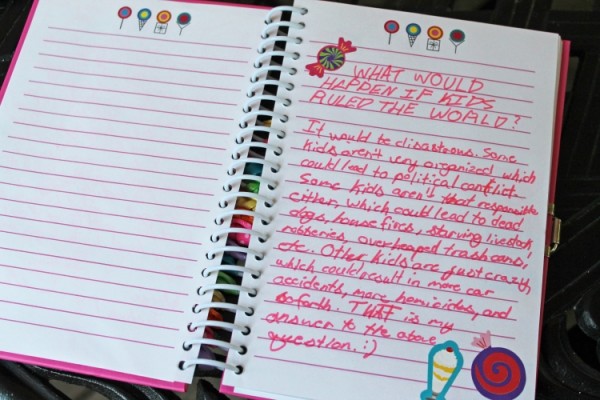 WHAT WOULD
HAPPEN IF KIDS
RULED THE WORLD?
It would be disasterous. Some
kids aren't very organized which
could lead to political conflict.
Some kids aren't that responsible
either, which could lead to dead
dogs, house fires, starving livestock,
robberies, overheaped trash cans,
etc. Other kids are just crazy,
which could result in more car
accidents, more homicides, and
so forth. THAT is my
answer to the above
question. :)